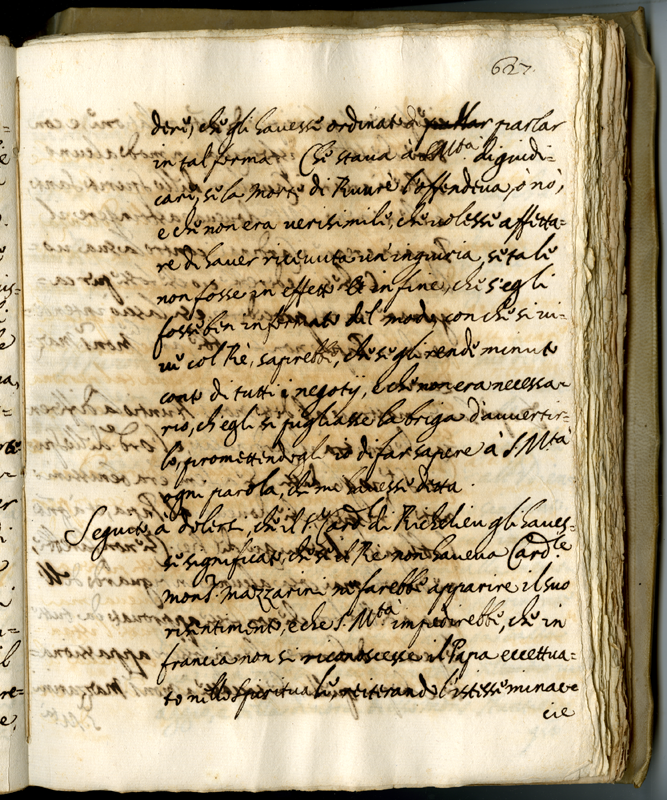 627.
dere, che gli havesse ordinato di parlar
in tal forma. Che stava à S. Mtà di giudi-
care, se la morte di Ruvrè l'offendeva, ò nò,
e che non era verisimile, che volesse affetta-
re di haver ricevuta un ingiuria, se tale
non fosse in effetto. Et in fine, che s'egli
fosse ben informato del modo, con che si vi-
ve col Rè, saprebbe, che se gli rende minuto
conto di tutti i negotij, e che non era necessa-
rio, ch'egli si pigliasse la briga d'avvertir-
lo, promettendogli io di far sapere à S. Mtà
ogni parola, che me havesse detta.
Seguitò à dolersi, che il Sr Card. di Richelieu gli haves-
se significato, che se il Re non haveva Cardle
Monsr Mazzarini ne farebbe apparire il suo
risentimento, e che S. Mtà impedirebbe, che in
francia non si riconoscesse il Papa eccettua-
to nello Spirituale, reiterando l'istesse minac-
cie